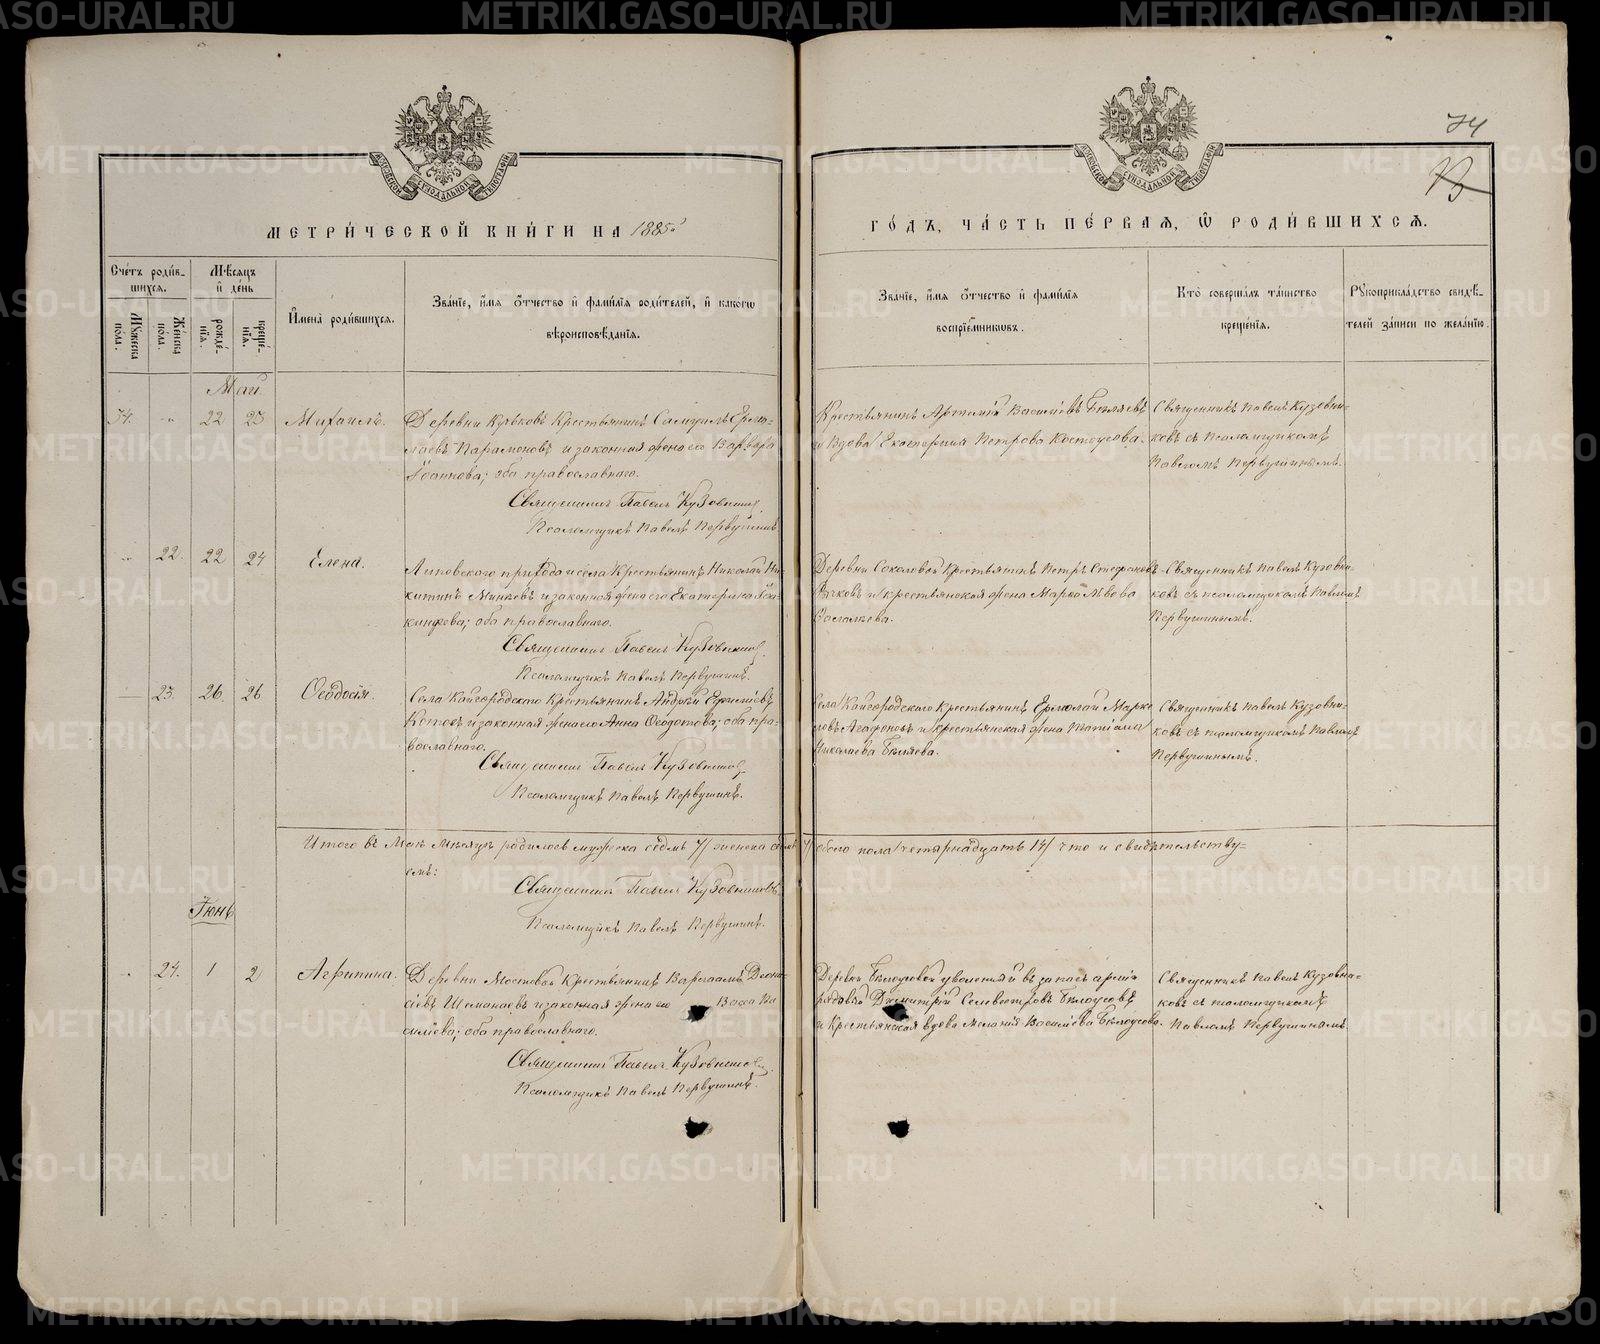 74
МЕТРИ́ЧЕСКОЙ КНИ́ГИ НА 1885й
ГО́ДЪ, ЧА́СТЬ ПЕ́РВАЯ, Ѿ РОДИ́ВШИХСѦ.
МОСКОВСКОЙ СѴНОДАЛЬНОЙ ТИПОГРАФІИ
МОСКОВСКОЙ СѴНОДАЛЬНОЙ ТИПОГРАФІИ
Сче́тъ роди́в-
шихся.
Мѣ́сяцъ
и҆ де́нь
Мꙋ́жеска
по́ла.
Же́нска
по́ла.
рожде́-
нїя.
креще́-
нїя.
И҆мена̀ роди́вшихся.
Зва́нїе, и҆́мя ѻ҆́тчество и҆ фами́лїя роди́телей, и҆ како́гѡ
вѣроисповѣ́данїя.
Зва́нїе, и҆́мя ѻ҆́тчество и҆ фами́лїя
воспрїе́мникѡвъ.
Кто̀ соверша́лъ та́инство
креще́нїя.
Рꙋкоприкла́дство свидѣ́-
телей за́писи по жела́нїю.
Май
34. " 22 23 Михаилъ.
Деревни Кульковъ Крестьянинъ Самуилъ Ермо-
лаевъ Парамоновъ и законная жена его Варвара
Іоаннова; оба православнаго.
Священникъ Павелъ Кузовников.
Псаломщикъ Павелъ Первушинъ
Крестьянинъ Артемій Васильевъ Бѣляевъ
и Вдова Екатерина Петрова Костоусова.
Священникъ Павелъ Кузовни-
ковъ съ псаломщикомъ
Павломъ Первушинымъ.
" 22. 22 24 Елена.
Липовскаго прихода и села Крестьянинъ Николай Ни-
китинъ Минѣевъ и законная жена его Екатерина
оба православнаго.
Священникъ Павелъ Кузовников.
Псаломщикъ Павелъ Первушинъ.
Деревни Соколовой Крестьянинъ Петръ Стефановъ
и крестьянская жена Марѳа Львова
Священникъ Павелъ Кузовни-
ковъ съ псаломщикомъ Павломъ
Первушинымъ.
23. 26 26 Ѳеодосія.
Села Кайгородскаго Крестьянинъ Андрей Ефимьевъ
Котовъ и законная жена его Анна Ѳеодотова; оба пра-
вославнаго.
Священникъ Павелъ Кузовников.
Псаломщикъ Павелъ Первушинъ.
Села Кайгородскаго Крестьянинъ Ермолай Марко
ловъ Агафоновъ и крестьянская жена
Николаева Бѣляева.
Священникъ Павелъ Кузовни-
ковъ съ псаломщикомъ Павломъ
Первушинымъ.
Итого въ Маѣ Мѣсяцѣ родилось мужеска седмь 7/ женска седмь 7/ обоего пола четырнадцать 14/ что и свидѣтельству-
емъ:
Священникъ Павелъ Кузовниковъ
Псаломщикъ Павелъ Первушинъ.
Іюнь
" 24. 1 2 Агрипина.
Деревни Мостовой Крестьянинъ Варлаамъ Діони-
сіевъ и законная жена его Васса Ва
силіева; оба православнаго.
Священникъ Павелъ Кузовников.
Псаломщикъ Павелъ Первушинъ.
Деревни Бѣлоусовой уволенный въ запасъ арміи
рядовой Димитрій Селевестровъ Бѣлоусовъ
и Крестьянская вдова Меланія Васильева Бѣлоусова.
Священникъ Павелъ Кузовни-
ковъ съ псаломщикомъ
Павломъ Первушинымъ.
METRIKI.GASO-URAL.RU